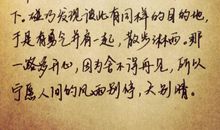 下。碰巧发现彼此有同样的目的地,
于是有勇气并肩一起,散步淋雨。那
一路多开心,因为舍不得再见,所以
宁愿人间的风雨别停,天别晴。